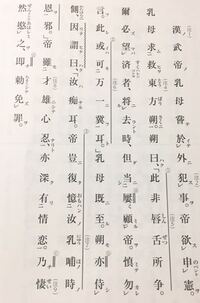 漢武帝乳母嘗於外犯事。帝欲申憲。
乳母求救東方朔。朔曰、「此非唇舌所争。
爾必望済者、将去時、但当屢顧帝。慎勿
言。此或可万一冀耳。」乳母既至。朔亦侍
側。因謂曰、「汝痴耳。帝豈復憶汝乳哺時
恩邪。」帝雖才雄心忍、亦深有情恋。乃悽
然愍之、即勅免罪。